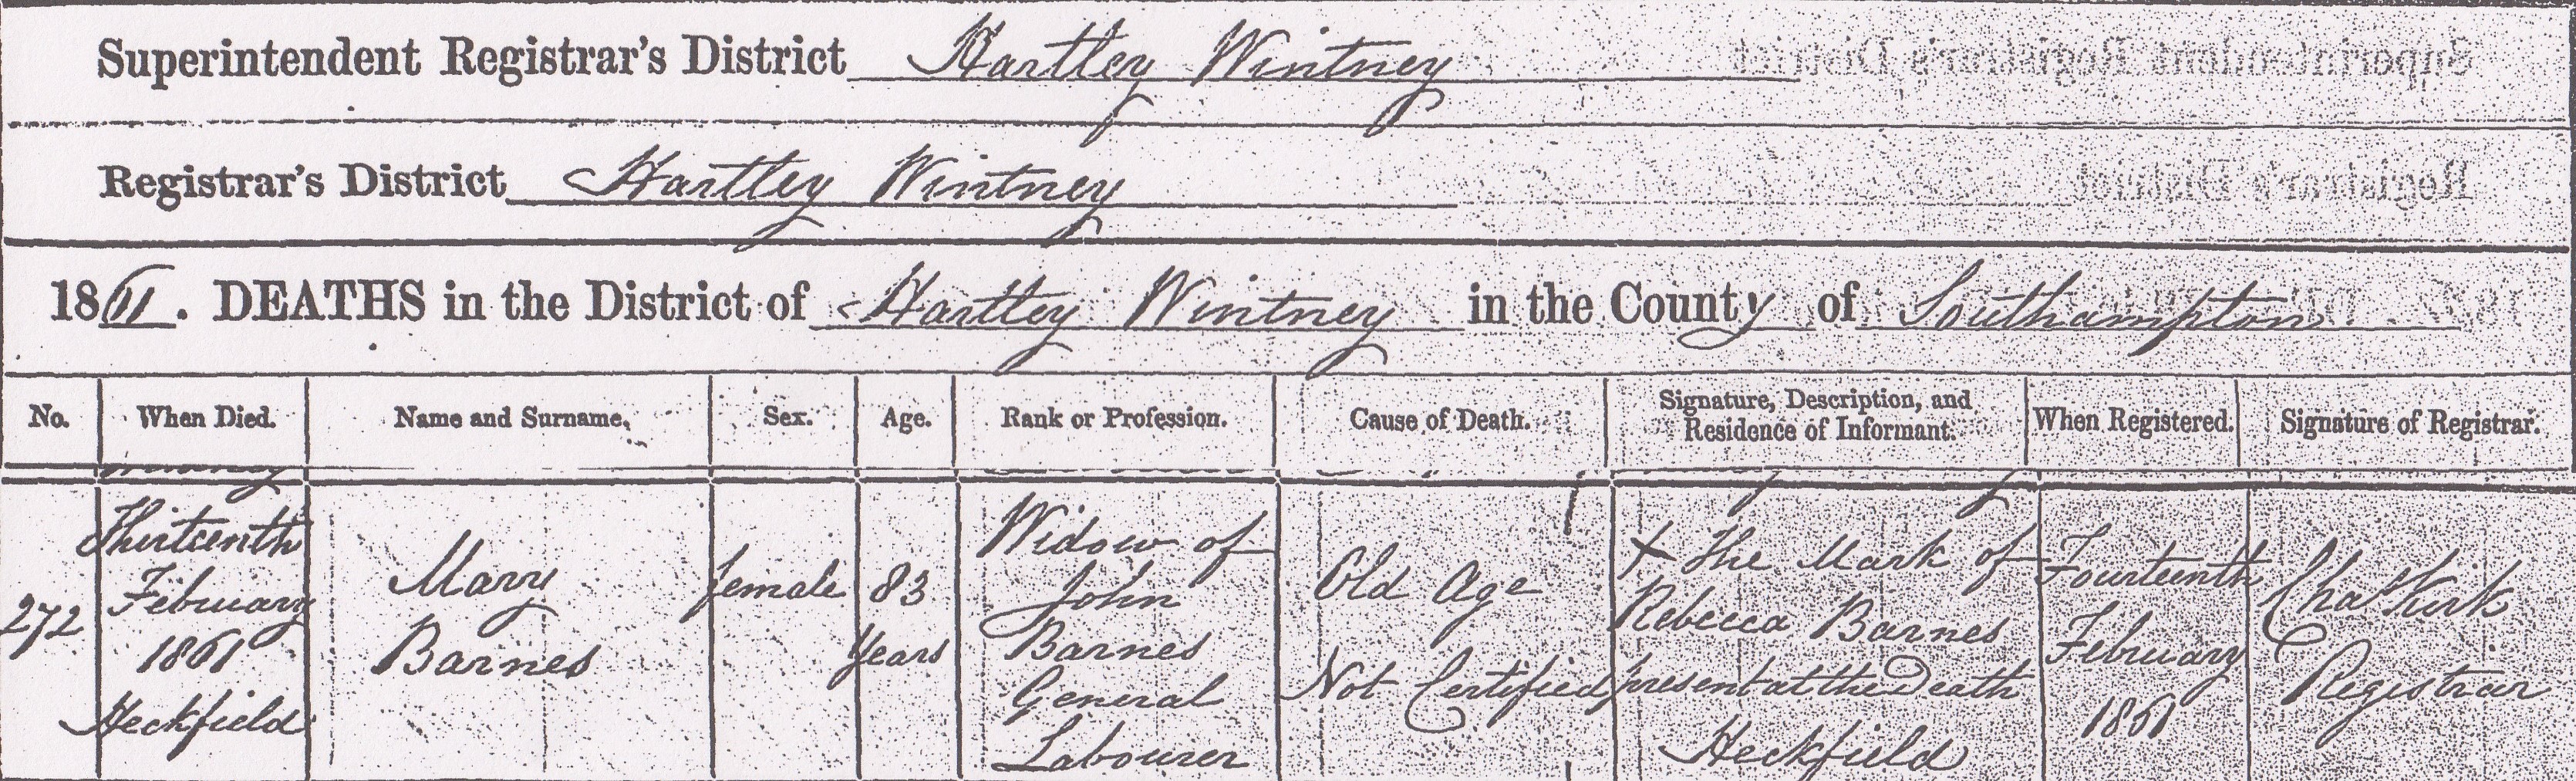 Superintendent Registrar's District Hartley Wintney
Registrar's District Hartley Wintney
1861. DEATHS in the District of Hartley Wintney in the County of Southampton
No. When Died. Name and Surname. Sex. Age. Rank or Profession. Cause of Death. Signature, Description, and Residence of Informant. When Registered. Signature of Registrar.
272
Thirteenth
February
1861
Heckfield
Mary
Barnes
female
83
Years
Widow of
John
Barnes
General
Labourer
Old Age
Not Certified
X The Mark of
Rebecca Barnes
present at the Death
Heckfield
Fourteenth
February
1861
Chas Kirk
Registrar